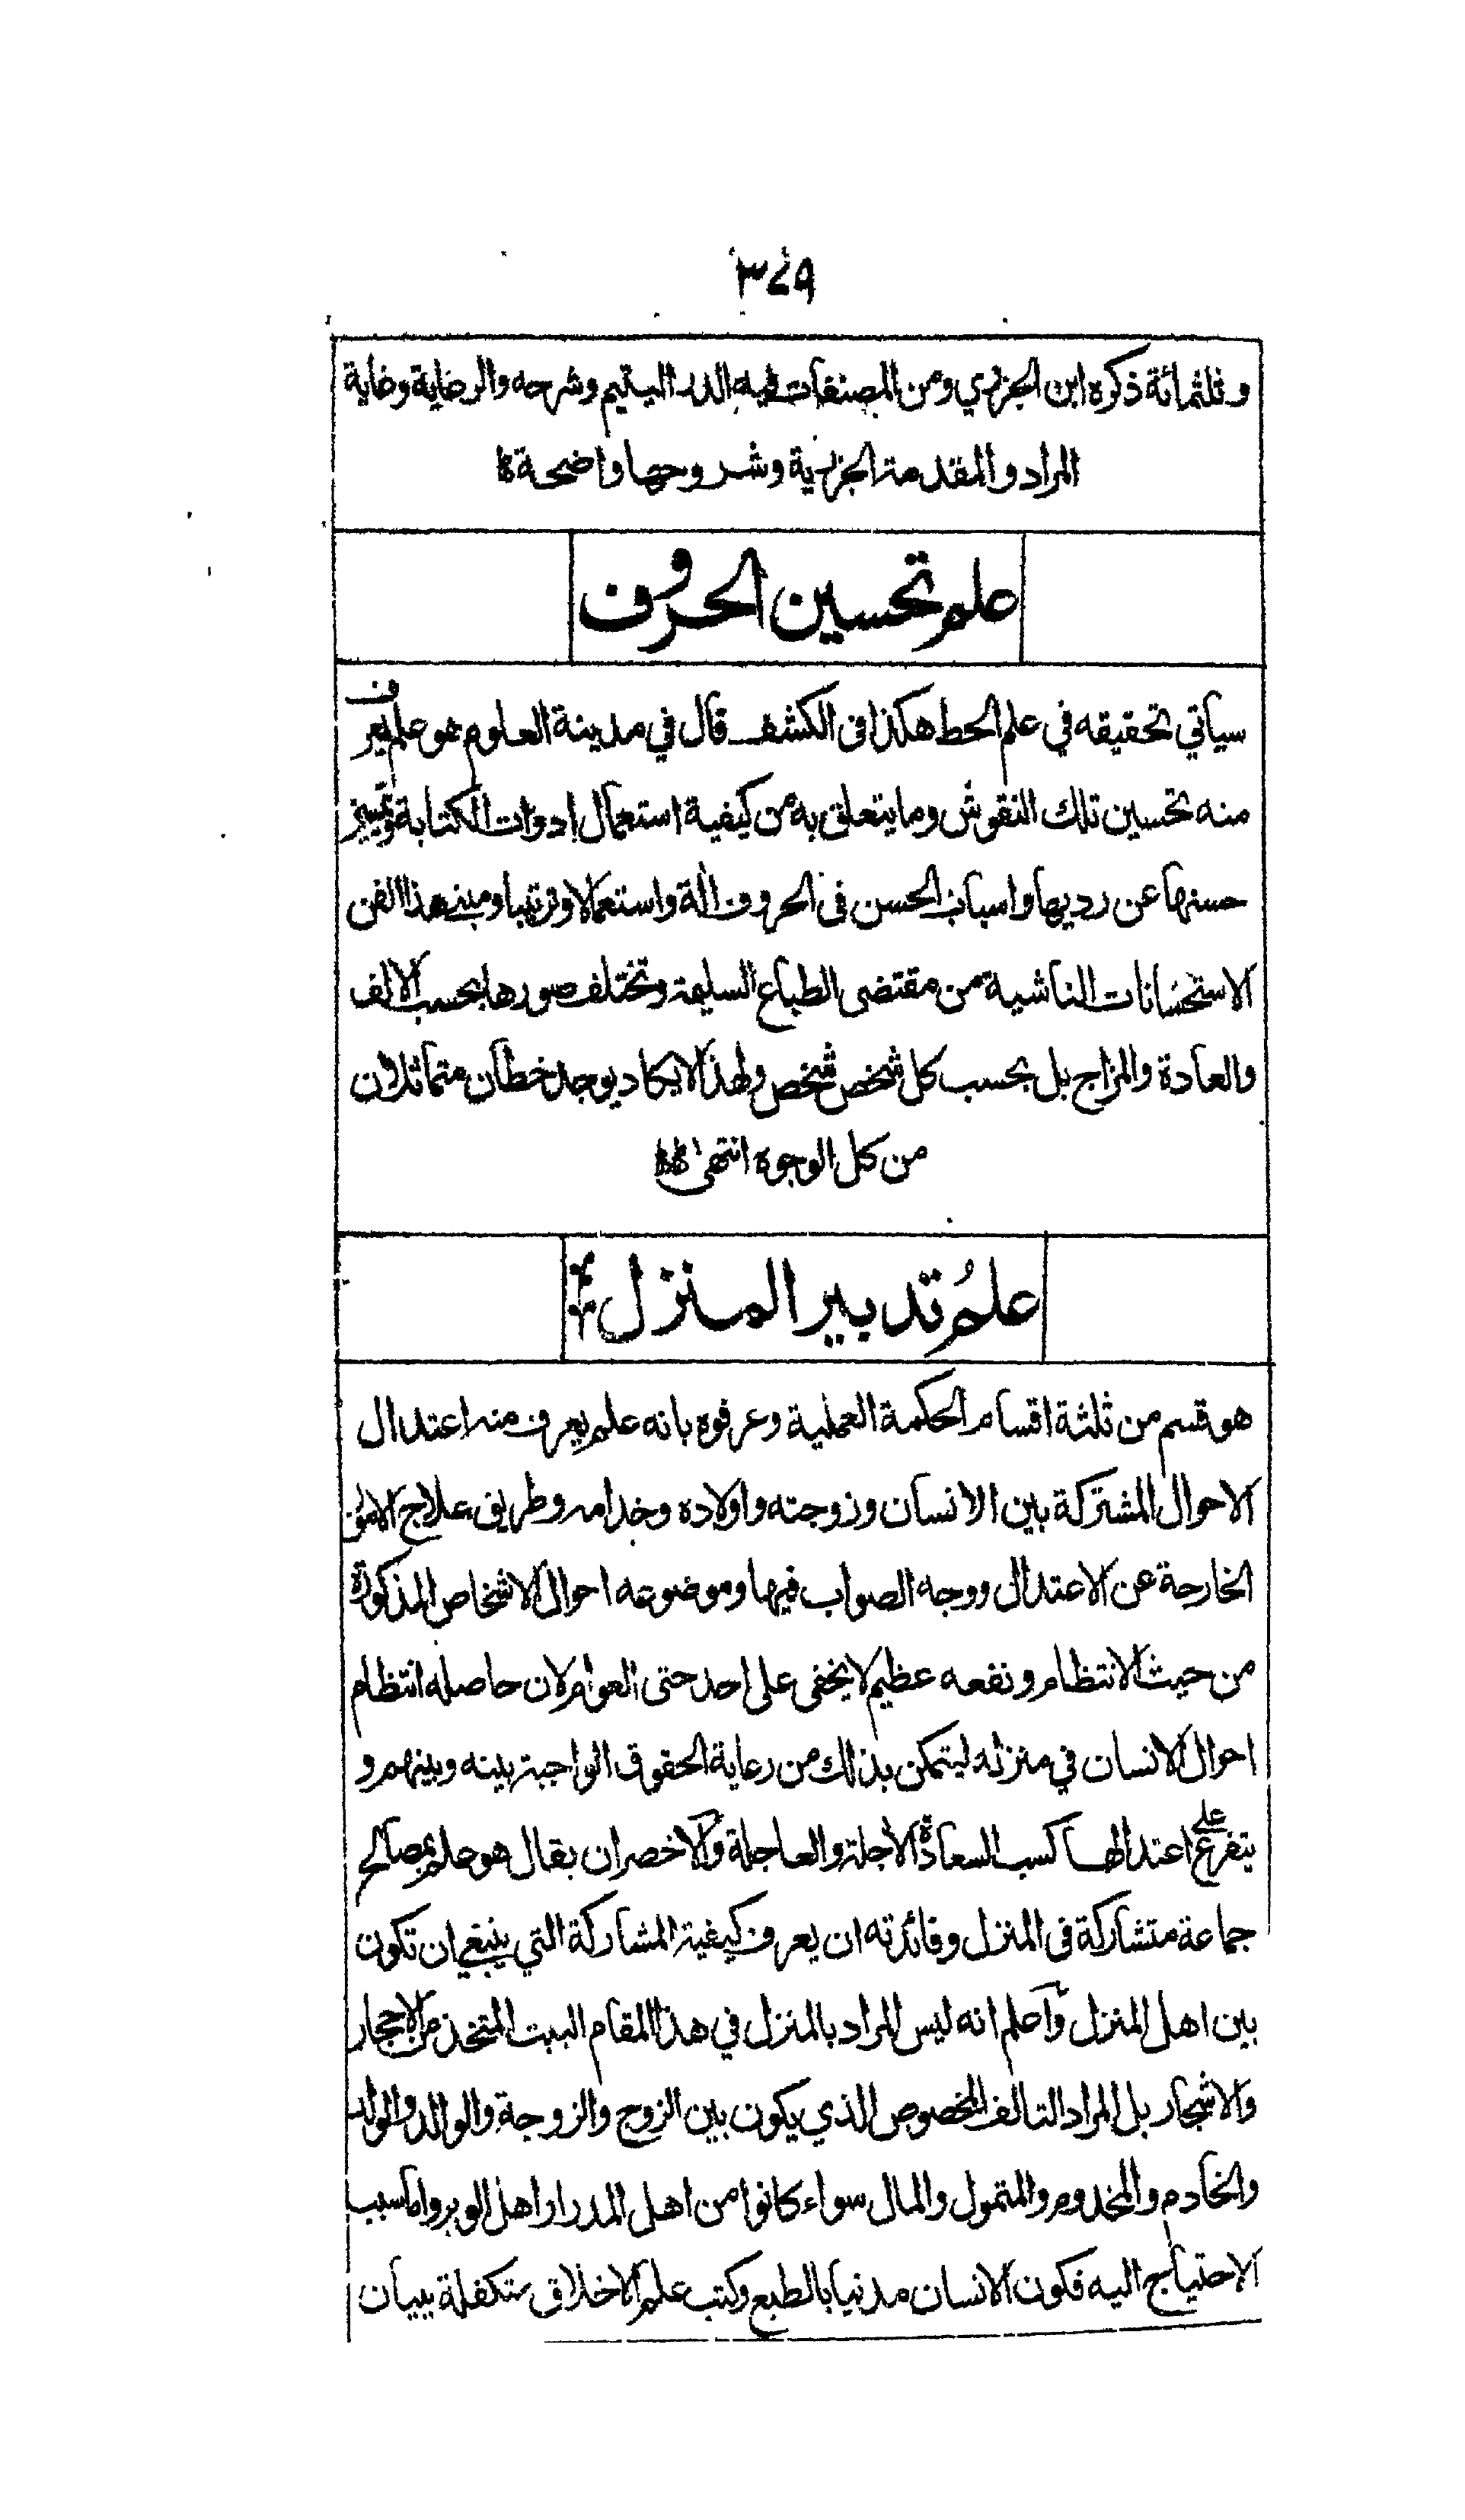 ٣٤٩
وثلثمائة ذكره ابن الجزري ومن المصنفات فيه الدر اليتيم وشرحه والرعاية وغاية
المراد والمقدمة الجزرية وشروحها واضحة
علم تحسين الحروف
سياتي تحقيقه في علم الخط هكذا فى الكشف قال في مدينة العلوم هو علم يعرف
منه تحسين تلك النقوش وما يتعلق به من كيفية استعمال ادوات الكتابة وتمييز
حسنها عن رديها واسباب الحسن فى الحروف الة واستعمالا وترتيبا ومبنى هذا الفن
الاستحسانات الناشية من مقتضى الطباع السليمة وتختلف صورها بحسب الالف
والعادة والمزاج بل بحسب كل شخص شخص ولهذا لا يكاد يوجد خطان متماثلان
من كل الوجوه انتهى
علمُ تدبير المنزل
هو قسم من ثلثة اقسام الحكمة العملية وعرفوه بانه علم يعرف منه اعتدال
الاحوال المشتركة بين الانسان وزوجته واولاده وخدامه وطريق علاج الامور
الخارجة عن الاعتدال ووجه الصواب فيها وموضوعه احوال الاشخاص المذكورة
من حيث الانتظام ونفعه عظيم لا يخفى على احد حتى العوام لان حاصله انتظام
احوال الانسان في منزله ليتمكن بذلك من رعاية الحقوق الواجبة بينه وبينهم و
يتفرغ على اعتدالها كسب السعادة الآجلة والعاجلة والاخصر ان يقال هو علم بمصالح
جماعة متشاركة فى المنزل وفائدته ان يعرف كيفية المشاركة التي ينبغي ان تكون
بين اهل المنزل وآعلم انه ليس المراد بالمنزل في هذا المقام البيت المتخذ من الاحجار
والاشجار بل المراد التالف المخصوص الذي يكون بين الزوج والزوجة والوالد والولد
والخادم والمخدوم والمتمول والمال سواء كانوا من اهل المدر او اهل الوبر واما سبب
الاحتياج اليه فكون الانسان مدنيا بالطبع وكتب علم الاخلاق متكفلة ببيان